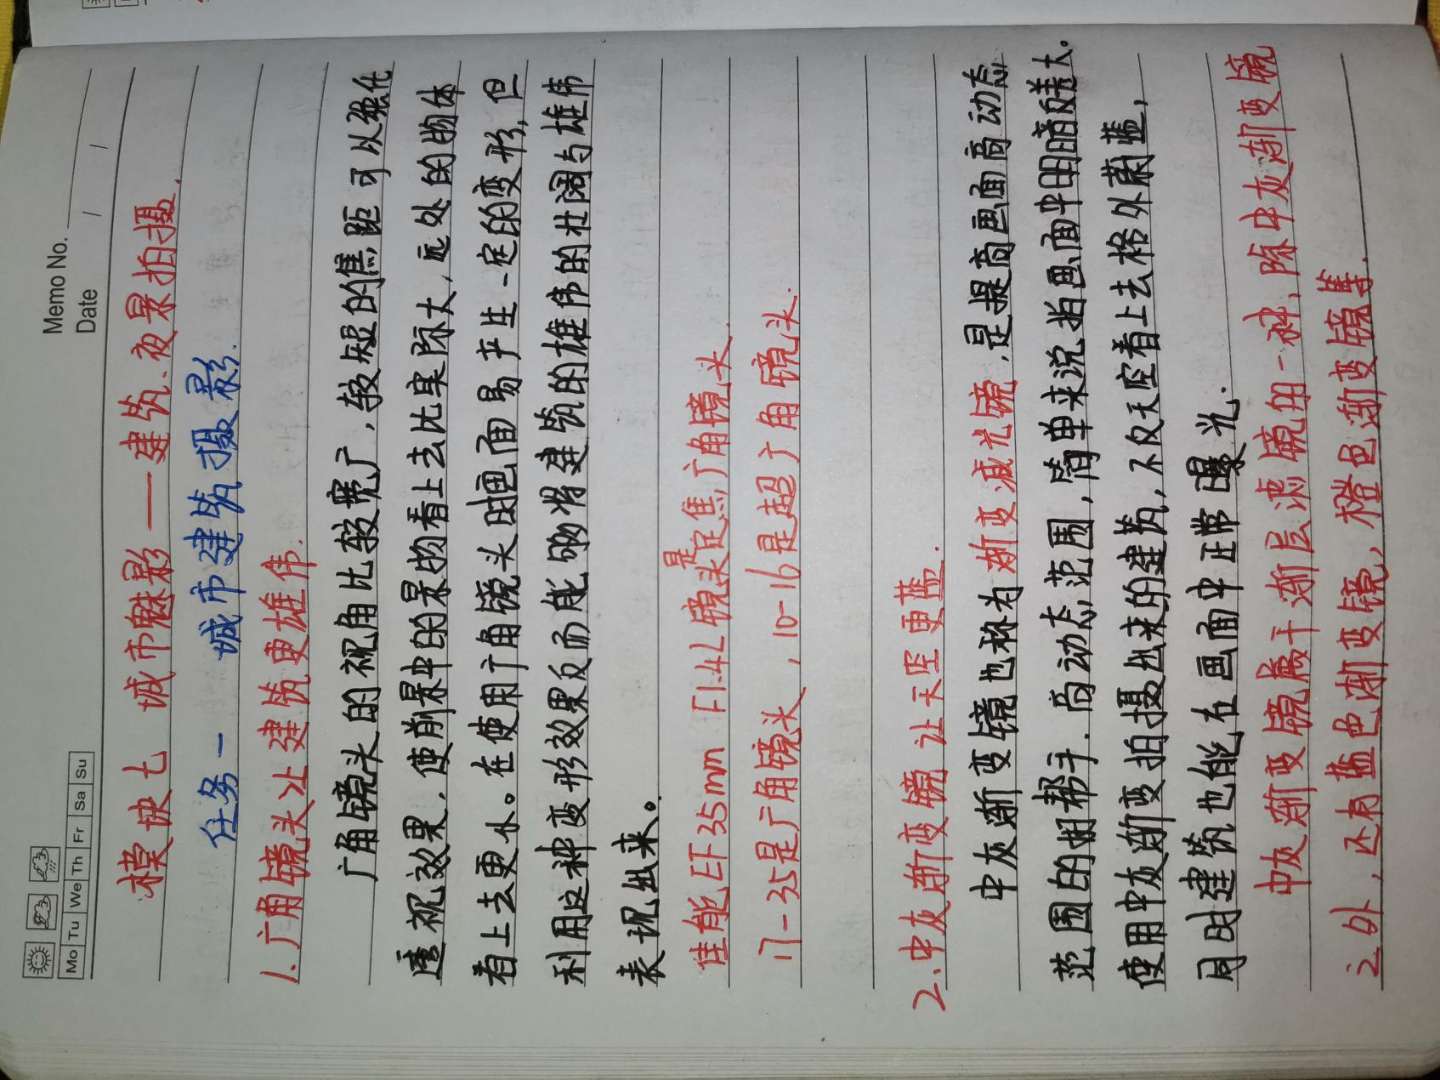 Memo No.
Date / /
Mo Tu We Th Fr Sa Su
模块七 城市魅影——建筑、夜景拍摄.
任务一 城市建筑摄影.
1.广角镜头让建筑更雄伟.
广角镜头的视角比较宽广,较短的焦距可以强化
透视效果,使前景中的景物看上去比实际大,远处的物体
看上去更小。在使用广角镜头时画面易产生一定的变形,但
利用这种变形效果反而能够将建筑的雄伟的壮阔与雄伟
表现出来。
佳能EF35mm F1.4L镜头是定焦广角镜头.
17-35是广角镜头,10-16是超广角镜头.
2.中灰渐变镜让天空更蓝.
中灰渐变镜也称为渐变减光镜,是提高画面高动态
范围的好帮手.高动态范围,简单来说指画面中明暗反差大.
使用中灰渐变拍摄出来的建筑,不仅天空看上去格外蔚蓝,
同时建筑也能在画面中正常曝光.
中灰渐变镜属于渐层滤镜的一种,除中灰渐变镜
之外,还有蓝色渐变镜,橙色渐变镜等.